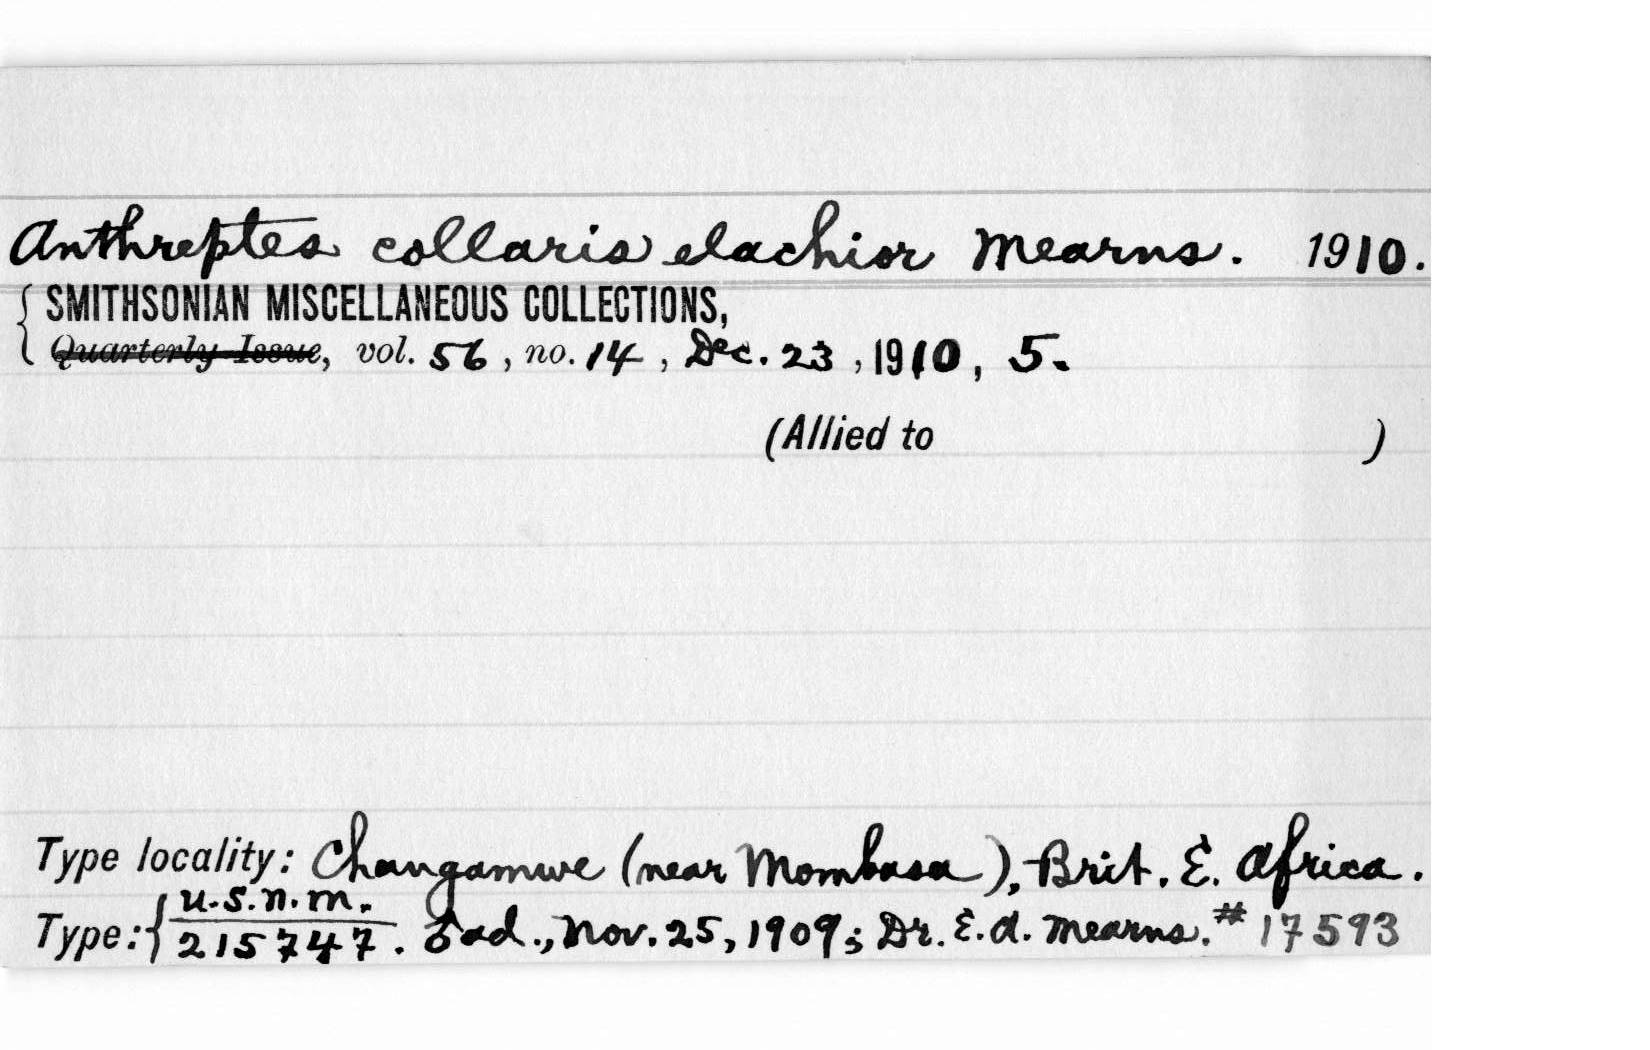 Anthreptes collaris elachior Mearns. 1910.
SMITHSONIAN MISCELLANEOUS COLLECTIONS,
Quarterly Issue, vol. 56, no. 14, Dec. 23, 1910, 5.
(Allied to )
Type locality: Changamwe (near Mombasa), Brit. E. Africa.
Type: { U.S.N.M.
215747. ♂ ad., Nov. 25, 1909; Dr. E. A. Mearns. # 17593